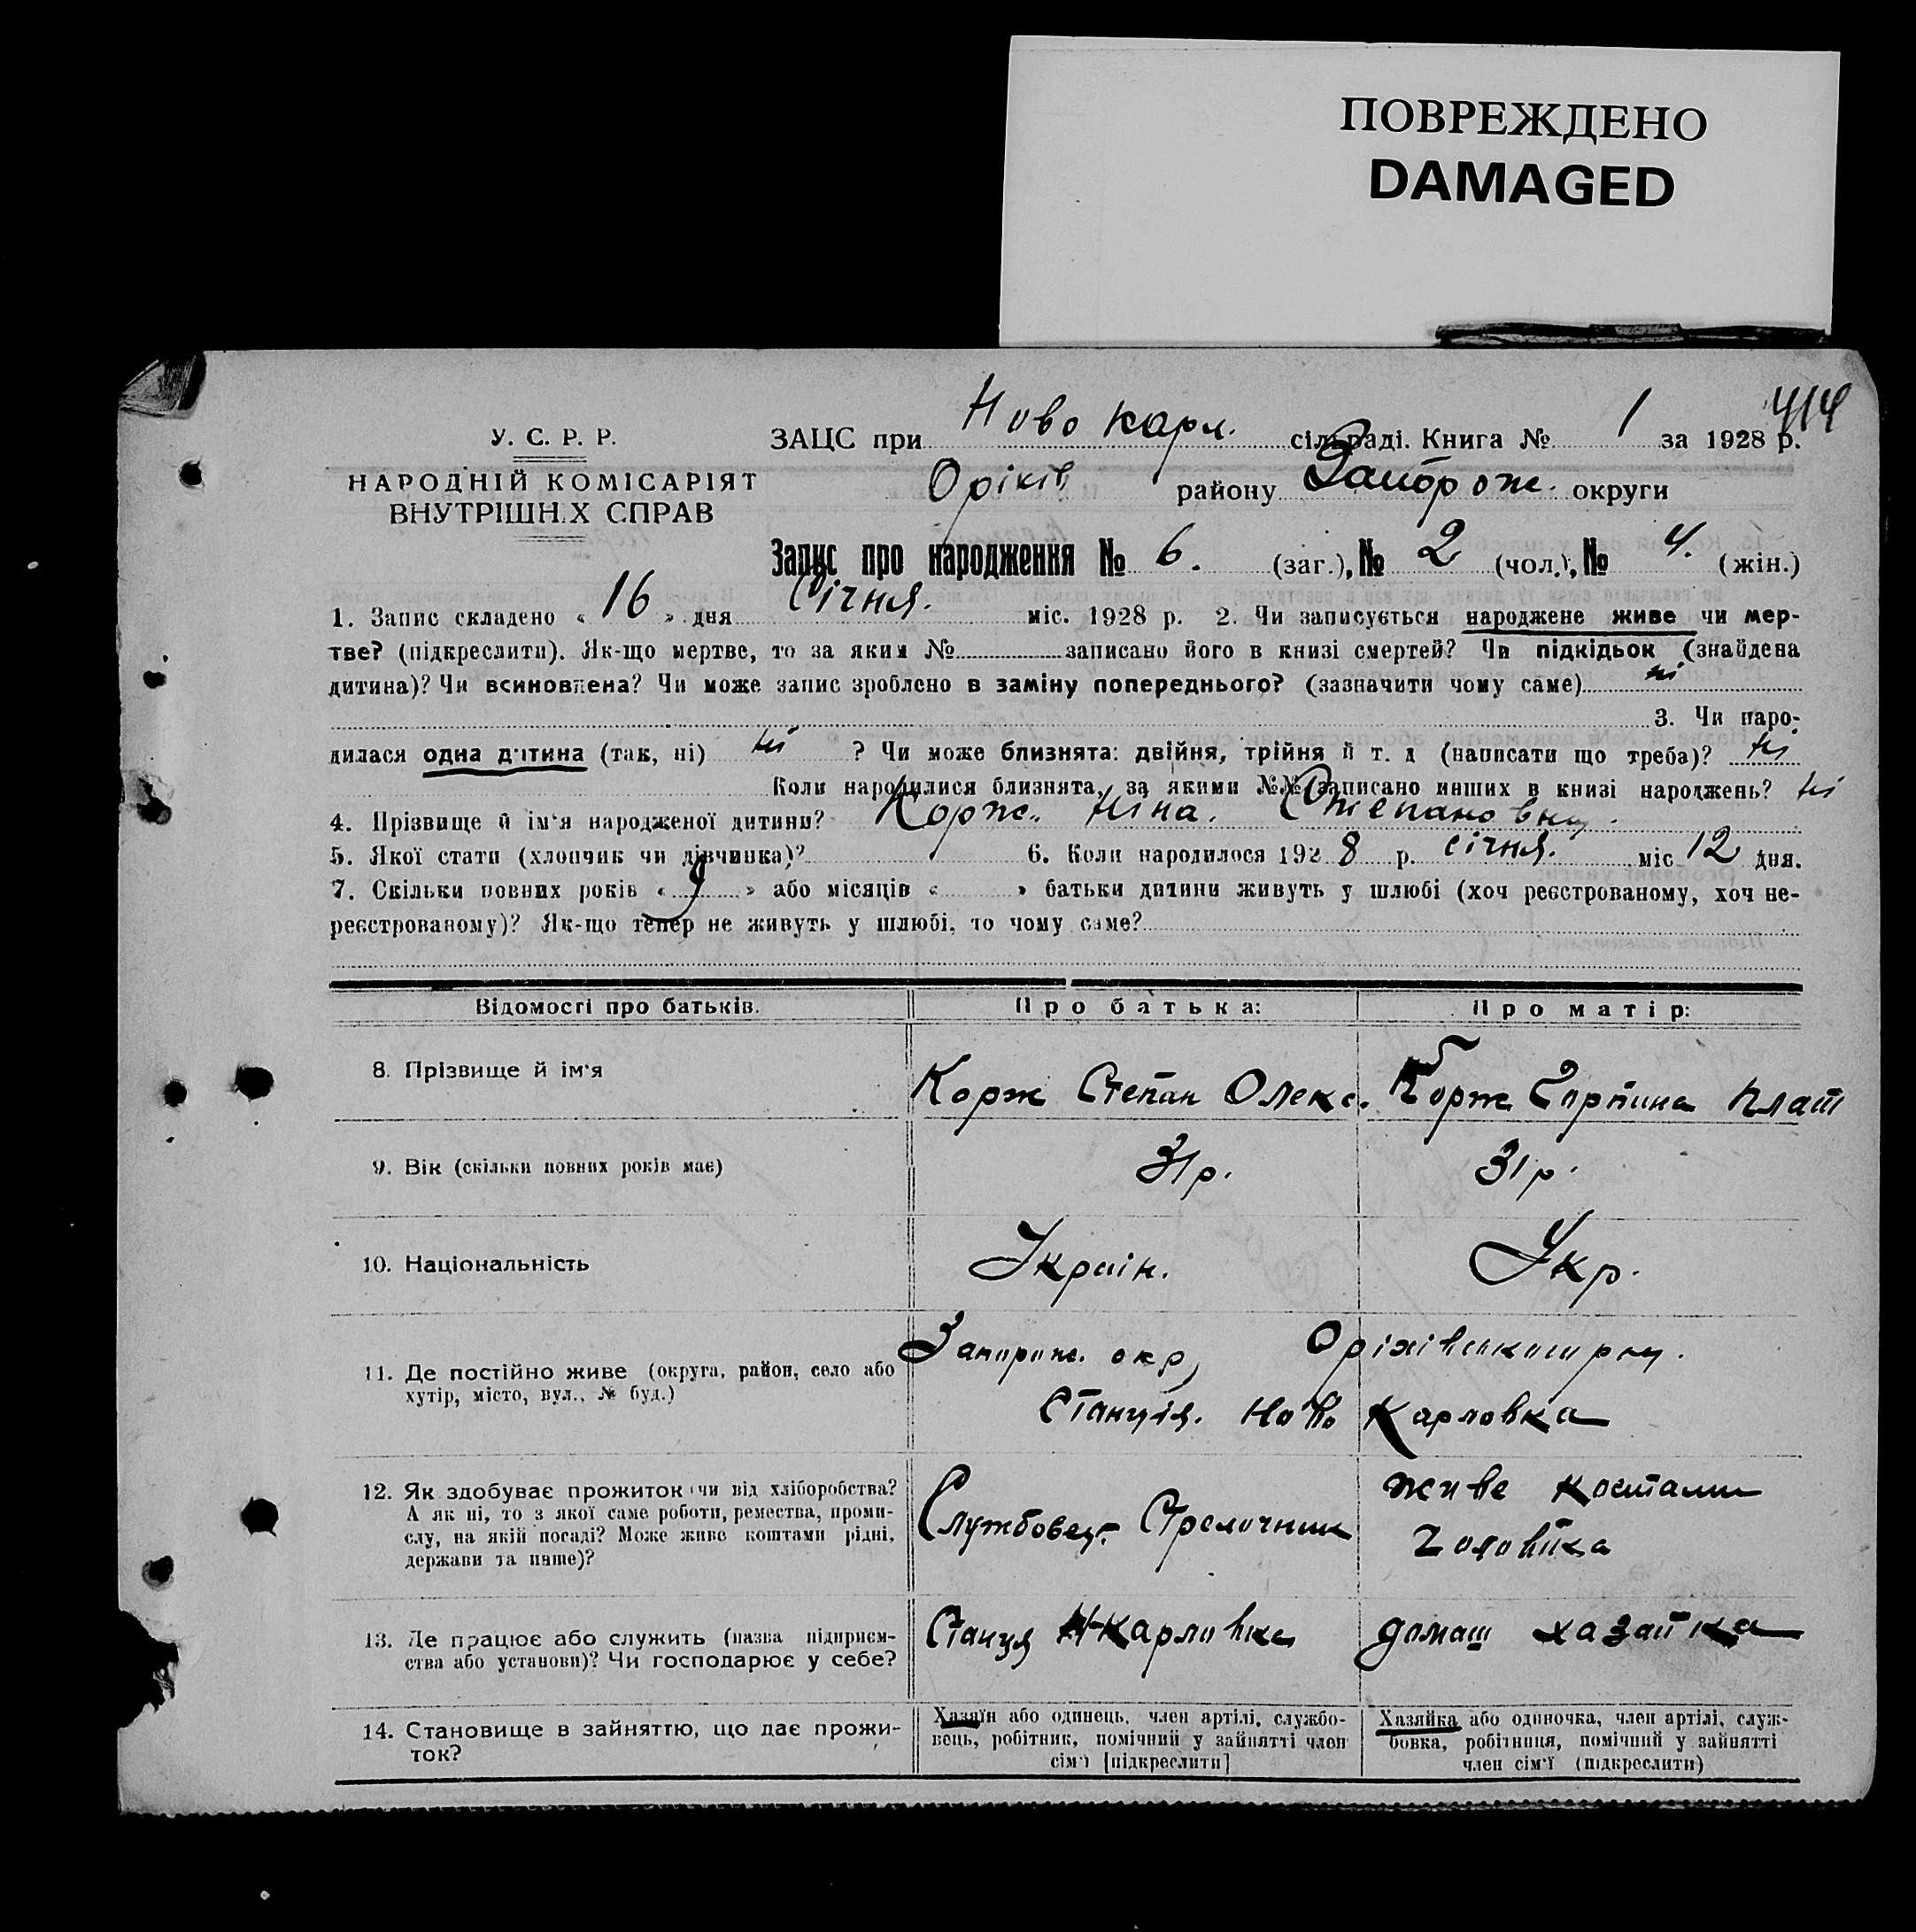 ПОВРЕЖДЕНО
DAMAGED
414
У. С. Р. Р.
НАРОДНІЙ КОМІСАРІЯТ
ВНУТРІШНІХ СПРАВ
ЗАЦС при Ново карл. сільраді. Книга № 1 за 1928 р.
Оріхів району Запорож. округи
Запис про народження № 6. (заг.), № 2 (чол.), № 4. (жін.)
1. Запис складено « 16 » дня Січня. міс. 1928 р. 2. Чи записується народжене живе чи мер-
тве? (підкреслити). Як-що мертве, то за яким № записано його в книзі смертей? Чи підкідьок (знайдена
дитина)? Чи всиновлена? Чи може запис зроблено в заміну попереднього? (зазначити чому саме) ні
3. Чи наро-
дилася одна дитина (так, ні) ні ? Чи може близнята: двійня, трійня й т. д (написати що треба)? ні
Коли народилися близнята, за якими №№ записано инших в книзі народжень? ні
4. Прізвище й ім'я народженої дитини? Корж. Ніна. Степановну.
5. Якої стати (хлопчик чи дівчинка)? 6. Коли народилося 1928 р. січня. міс 12 дня.
7. Скільки повних років « 9 » або місяців « » батьки дитини живуть у шлюбі (хоч реєстрованому, хоч не-
реєстрованому)? Як-що тепер не живуть у шлюбі, то чому саме?
Відомості про батьків. Про батька: Про матір:
8. Прізвище й ім'я Корж Степан Олекс. Корж Горпина Плат
9. Вік (скільки повних років має) 31 р. 31 р.
10. Національність Україн. Укр.
11. Де постійно живе (округа, район, село або
хутір, місто, вул., № буд.)
Запорож. окр, Оріхівського рну.
Станція. Ново Карловка
12. Як здобуває прожиток чи від хліборобства?
А як ні, то з якої саме роботи, ремества, проми-
слу, на якій посаді? Може живе коштами рідні,
держави та инше)?
Службовец. Стрелочник
живе коштами
чоловіка
13. Де працює або служить (назва підприєм-
ства або установи)? Чи господарює у себе?
Станця Н-Карловка
домаш хазайка
14. Становище в зайняттю, що дає прожи-
ток?
Хазяїн або одинець, член артілі, службо-
вець, робітник, помічний у зайнятті член
сім'ї [підкреслити]
Хазяйка або одиночка, член артілі, служ-
бовка, робітниця, помічний у зайнятті
член сім'ї (підкреслити)